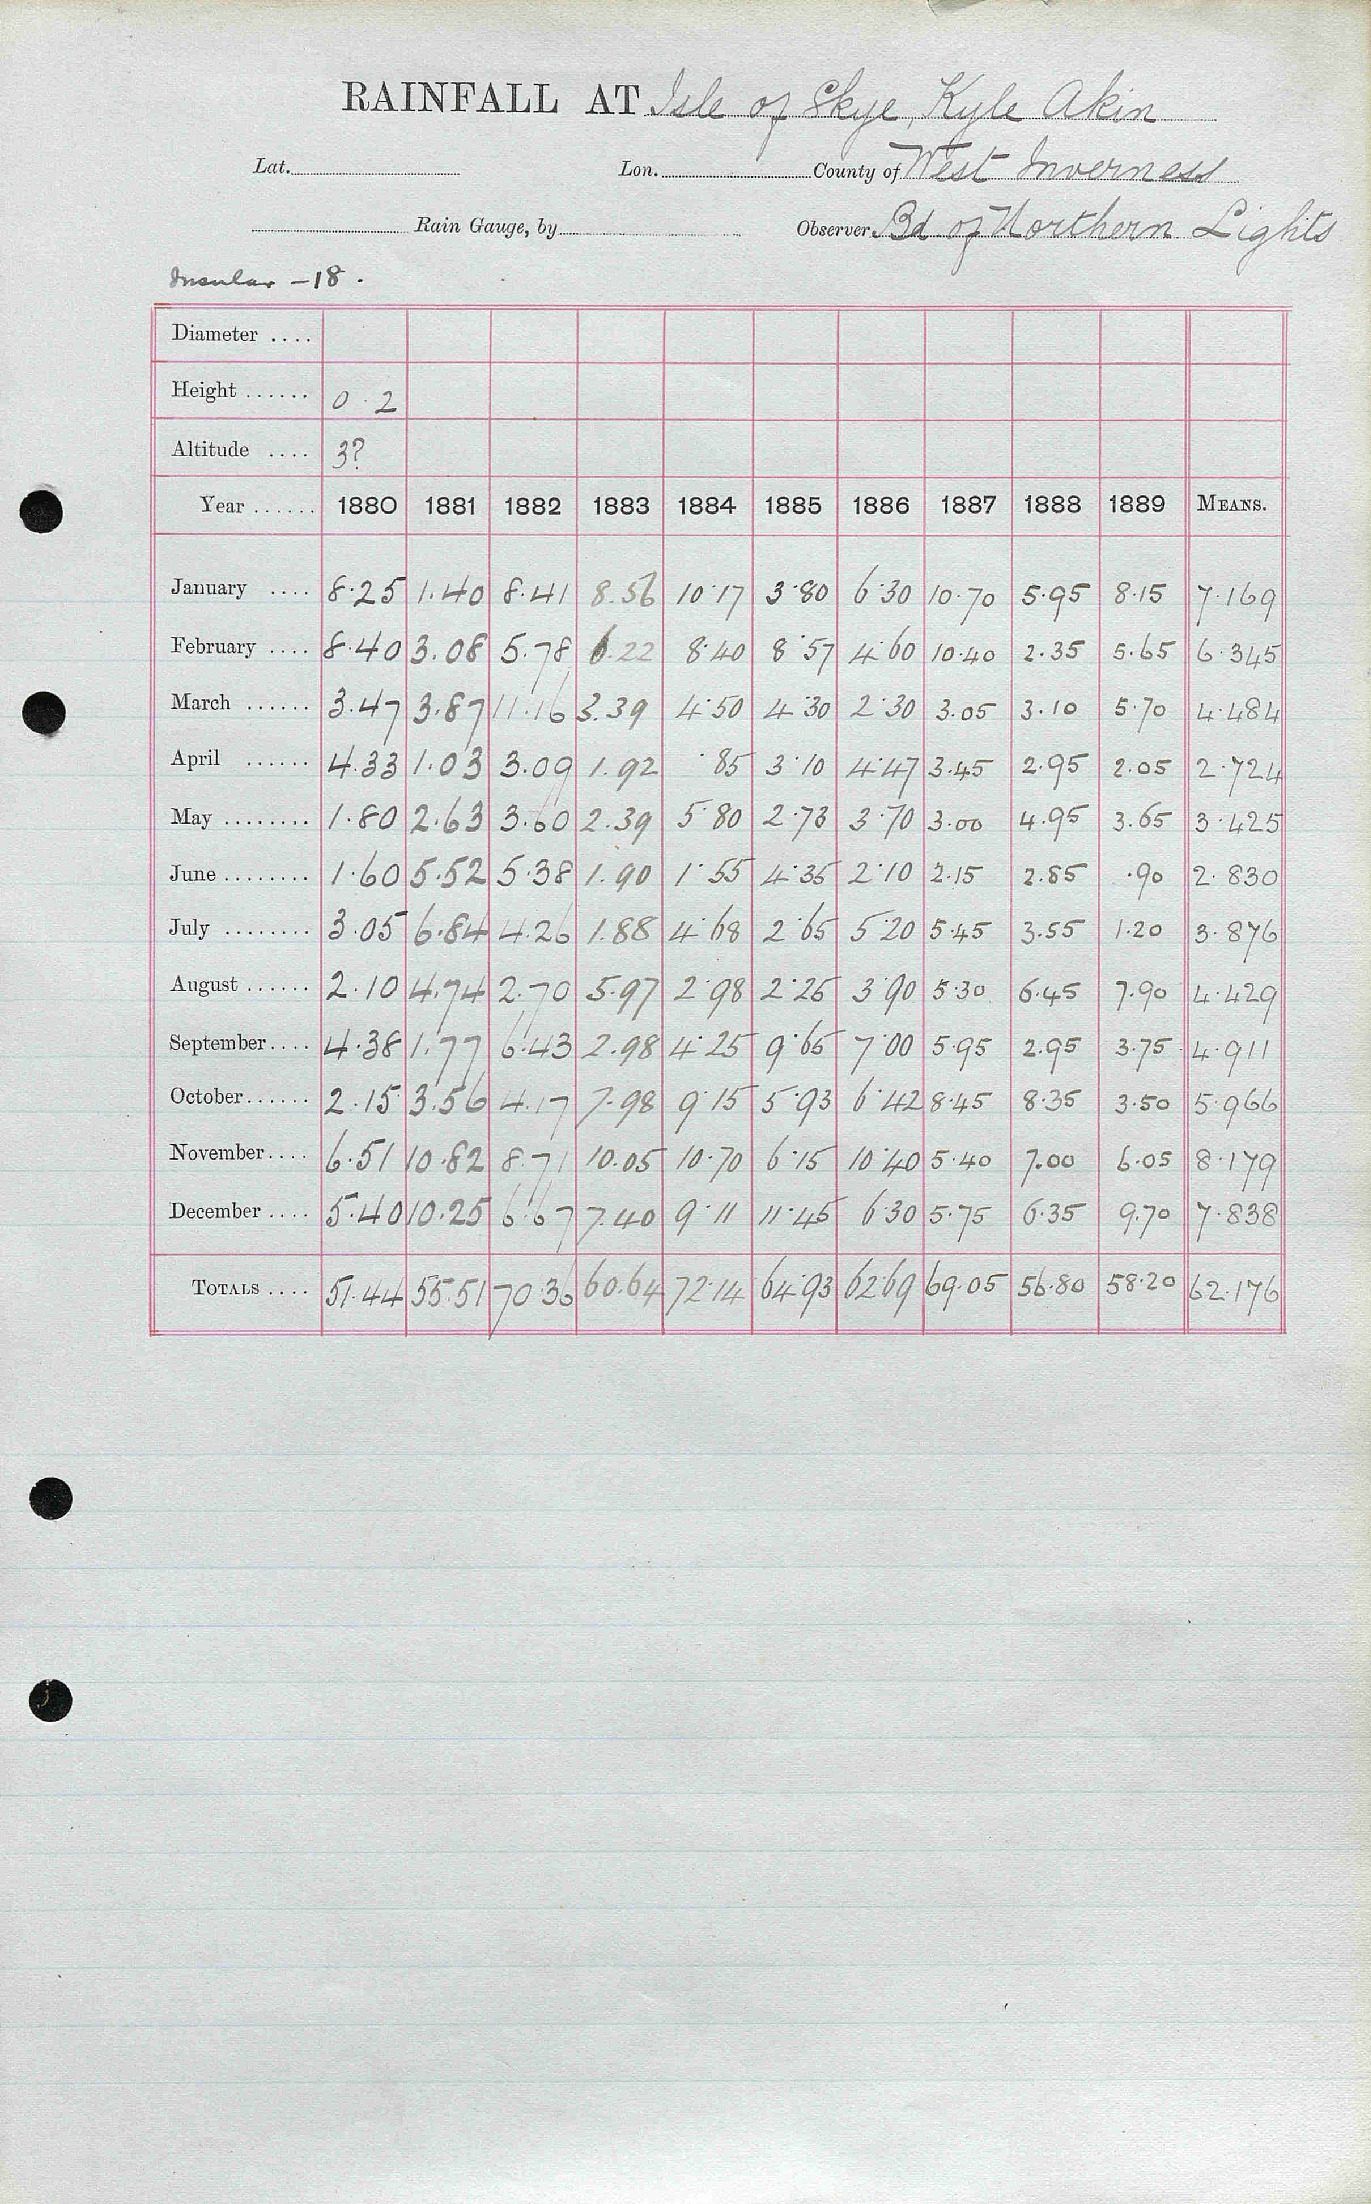 RAINFALL AT Isle of Skye, Kyle Akin
Lat. Lon. County of West Inverness
Rain Gauge, by Observer Bd of Northern Lights
Insular - 18.
Diameter ....
Height ...... 0 . 2
Altitude .... 3?
Year ...... 1880 1881 1882 1883 1884 1885 1886 1887 1888 1889 MEANS.
January .... 8.25 1.40 8.41 8.56 10.17 3.80 6.30 10.70 5.95 8.15 7.169
February .... 8.40 3.08 5.78 6.22 8.40 8.57 4.60 10.40 2.35 5.65 6.345
March ...... 3.47 3.87 11.16 3.39 4.50 4.30 2.30 3.05 3.10 5.70 4.484
April ...... 4.33 1.03 3.09 1.92 .85 3.10 4.47 3.45 2.95 2.05 2.724
May ........ 1.80 2.63 3.60 2.39 5.80 2.73 3.70 3.00 4.95 3.65 3.425
June ........ 1.60 5.52 5.38 1.90 1.55 4.35 2.10 2.15 2.85 .90 2.830
July ........ 3.05 6.84 4.26 1.88 4.68 2.65 5.20 5.45 3.55 1.20 3.876
August ...... 2.10 4.74 2.70 5.97 2.98 2.25 3.90 5.30 6.45 7.90 4.429
September .... 4.38 1.77 6.43 2.98 4.25 9.65 7.00 5.95 2.95 3.75 4.911
October ...... 2.15 3.56 4.17 7.98 9.15 5.93 6.42 8.45 8.35 3.50 5.966
November .... 6.51 10.82 8.71 10.05 10.70 6.15 10.40 5.40 7.00 6.05 8.179
December .... 5.40 10.25 6.67 7.40 9.11 11.45 6.30 5.75 6.35 9.70 7.838
TOTALS .... 51.44 55.51 70.36 60.64 72.14 64.93 62.69 69.05 56.80 58.20 62.176